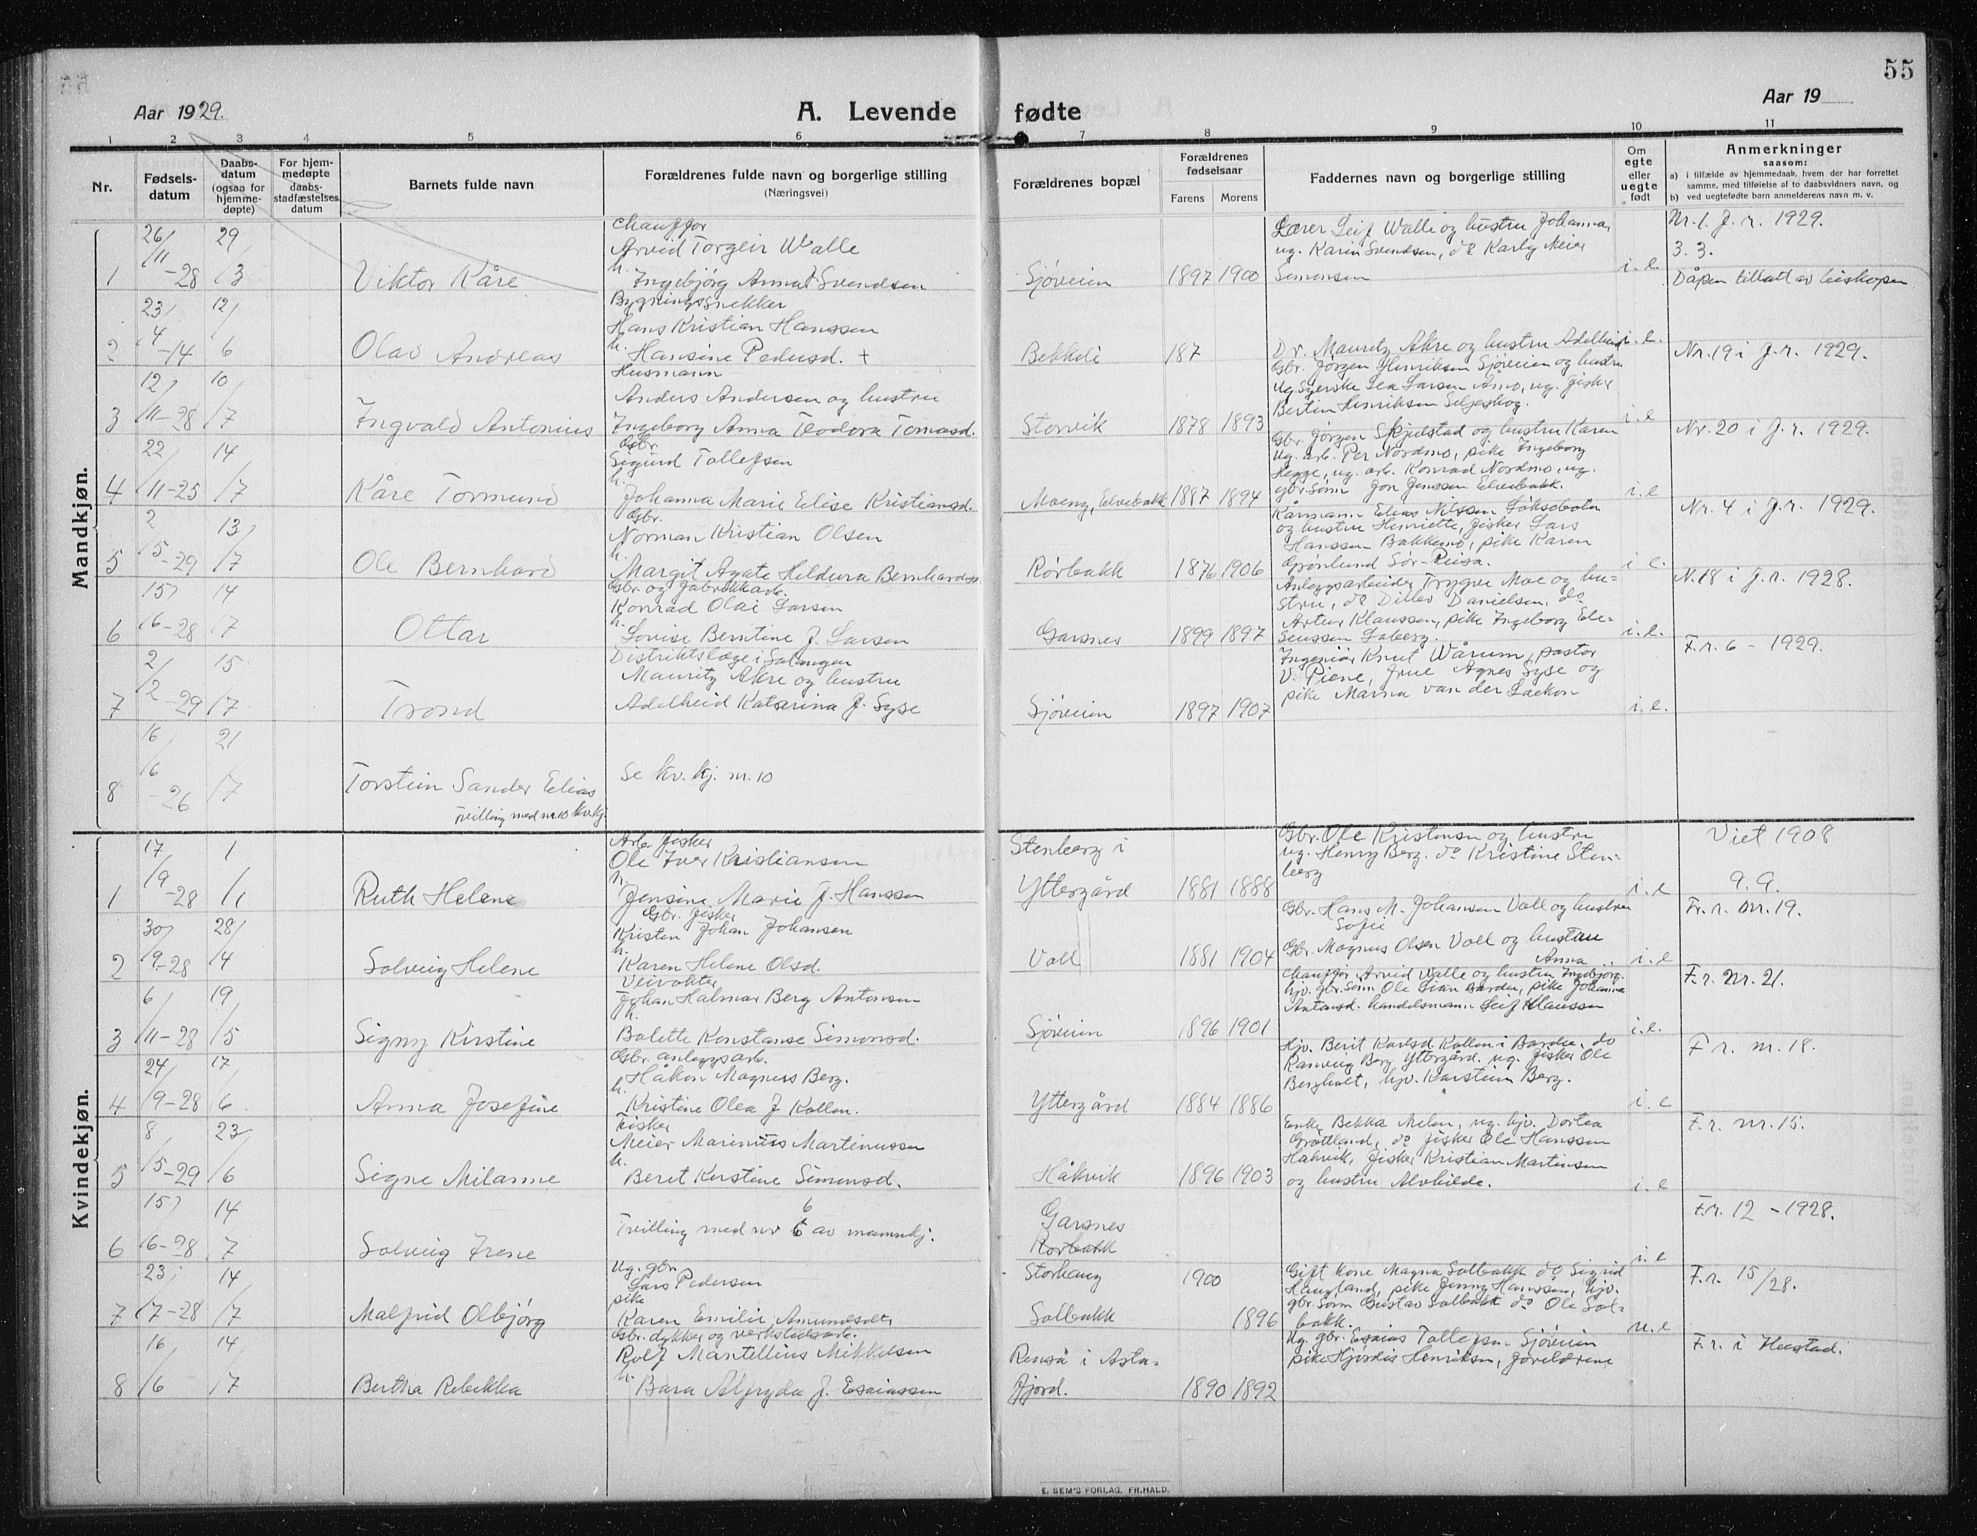 55
Aar 1929.
A. Levende fødte
Aar 19
1 2 3 4 5 6 7 8 9 10 11
Nr.
Fødsels-
datum
Daabs-
datum
(ogsaa for
hjemme-
døpte)
For hjem-
medøpte
daabs-
stadfæstelses
datum
Barnets fulde navn
Forældrenes fulde navn og borgerlige stilling
(Næringsvei)
Forældrenes bopæl
Forældrenes
fødselsaar
Farens Morens
Faddernes navn og borgerlige stilling
Om
egte
eller
uegte
født
Anmerkninger
saasom:
a) i tilfælde av hjemmedaab, hvem der har forrettet
samme, med tilføielse af to daabsvidners navn, og
b) ved uegtefødte børn anmelderens navn m. v.
Mandkjøn.
1 26/11-28 29/3 Viktor Kåre
Chauffør
Arvid Torgeir Walle
h.
Ingebjørg Anna Svendsen
Sjøveien 1897 1900
Lærer Leif Walle og hustru Johanna,
ug. Karin Svendsen, do Karly Meier
Simonsen
i. e.
Nr. 1 J. r. 1929.
3. 3.
Dåpen tillatt av biskopen
2 23/4-14 12/6 Olav Andreas
Bygningssnekker
Hans Kristian Hanssen
h.
Hansine Pedersd. +
Bekkeli 187
Dr. Mauritz Akre og hustru Adelheid
Gbr. Jørgen Henriksen Sjøveien og hustru
i. e.
Nr. 19 i J. r. 1929.
3 12/11-28 10/7 Ingvald Antonius
Husmann
Anders Andersen og hustru
Ingeborg Anna Teodora Tomasd.
Storvik 1878 1893
Ug. Syerske Lea Larsen Arno, ug. fisker
Bertin Henriksen Seljeskog.
i. e
Nr. 20 i J. r. 1929.
4 22/11-25 14/7 Kåre Tormund
Gbr.
Sigurd Tollefsen
h.
Johanna Marie Elise Kristiansd.
Moeng, Elvebakk 1887 1894
Gbr. Jørgen Skjulstad og hustru Karen
Ug. arb. Per Nordmo, pike Ingeborg
Hegge, ug. arb. Konrad Nordmo, ug.
gbr.sønn Jon Jenssen Elvebakk.
i. e
Nr. 4 i J. r. 1929.
5 2/5-29 13/7 Ole Bernhard
Gbr.
Norman Kristian Olsen
h.
Margit Agate Heldura Bernhardsd.
Rørbakk 1876 1906
Kårmann Elias Nilssen Løksebotn
og hustru Henriette, fisker Lars
Hanssen Bakkemo, pike Karen
Grønlund Sør-Reisa.
i e.
N. 18 i J. r. 1928.
6 15/6-28 14/7 Ottar
Gbr. og fabrikkarb.
Konrad Olai Larsen
h.
Lovise Berntine f. Larsen
Garsnes 1899 1897
Anleggsarbeider Trygve Moe og hu=
stru, do Ditlev Danielsen, do
Artur Klaussen, pike Ingeborg Ele=
seussen Laberg.
i. e.
F. r. 6 - 1929.
7 2/2-29 15/7 Trond
Distriktslæge i Salangen
Mauritz Akre og hustru
Adelheid Katarina f. Syse
Sjøveien 1897 1907
Ingeniør Knut Wårum, pastor
V. Piene, frue Agnes Syse og
pike Marna van der Laeken
i. e.
8 16/16-26 21/7 Torstein Sander Elias
tvilling med nr. 10 kv.kj.
Se kv. kj. nr. 10
Kvindekjøn.
1 17/9-28 1/1 Ruth Helene
Arb. fisker
Ole Iver Kristiansen
h.
Jensine Marie f. Hanssen
Stenberg i
Yttergård 1881 1888
Gbr. Ole Kristensen og hustru
ug. Henry Berg. do Kristine Sten-
berg
i. e
Viet 1908
9. 9.
2 30/9-28 28/4 Solveig Helene
Gbr. fisker
Kristen Johan Johansen
h.
Karen Helene Olsd.
Voll 1881 1904
Gbr. Hans M. Johansen Voll og hustru
Sofie
Gbr. Magnus Olsen Voll og hustru
Anna
i. e
Fr. r. nr. 19.
3 6/11-28 19/5 Signy Kirstine
Veivokter
Johan Halmar Berg Antonsen
h.
Balette Konstanse Simonsd.
Sjøveien 1896 1901
Chauffør Arvid Valle og hustru Ingebjørg.
hjv. gbr. sønn Ole Lian Barden, pike Johanna
Antonsd. handelsmann Leif Klaussen
i. e.
F. r. nr. 21.
4 24/9-28 17/6 Anna Josefine
Gbr. anleggsarb.
Håkon Magnus Berg.
h.
Kristine Olea f Kollen.
Yttergård 1884 1886
Hjv. Berit Karlsd. Kollen i Bardu, do
Ranveig Berg Yttergård. ug. fisker Ole
Bergholt, hjv. Karstein Berg.
i. e
F r. nr. 18.
5 8/5-29 23/6 Signe Milanne
Fisker
Meier Marinius Martinussen
h.
Beret Kirstine Simonsd.
Håkvik 1896 1903
Enke Bekka Melen, ug. hjv. Dortea
Grøttland, do fisker Ole Hanssen
Håkvik, fisker Kristian Martinsen
og hustru Alvhilde.
i. e
F. r. nr. 15.
6 15/6-28 14/7 Solveig Irene
6
Tvilling med nr 6 av mannkj.
Garsnes
Rørbakk
i. e
F. r. 12 - 1928.
7 23/7-28 14/7 Malfrid Olbjørg
Ug. gbr.
Lars Pedersen
pike
Karen Emilie Amundsdtr
Storhaug 1900
Solbakk 1896
Gift kone Magna Solbakk do Sigrid
Haugland, pike Jenny Hanssen, hjv.
gbr. sønn Gustav Solbakk do Ole Sol-
bakk.
u. e
F. r. 15/28.
8 16/6 14/7 Bertha Rebekka
Gbr. dykker og verkstedsarb.
Rolf Mantellius Mikkelsen
h.
Bara Alfryda f. Esaiassen
Renså i Asta-
fjord. 1890 1892
Ug. gbr. Esaias Tollefsen Sjøveien
pike Hjørdis Henriksen, foreldrene
F. r. i Ibestad.
E. SEM'S FORLAG, FR.HALD.